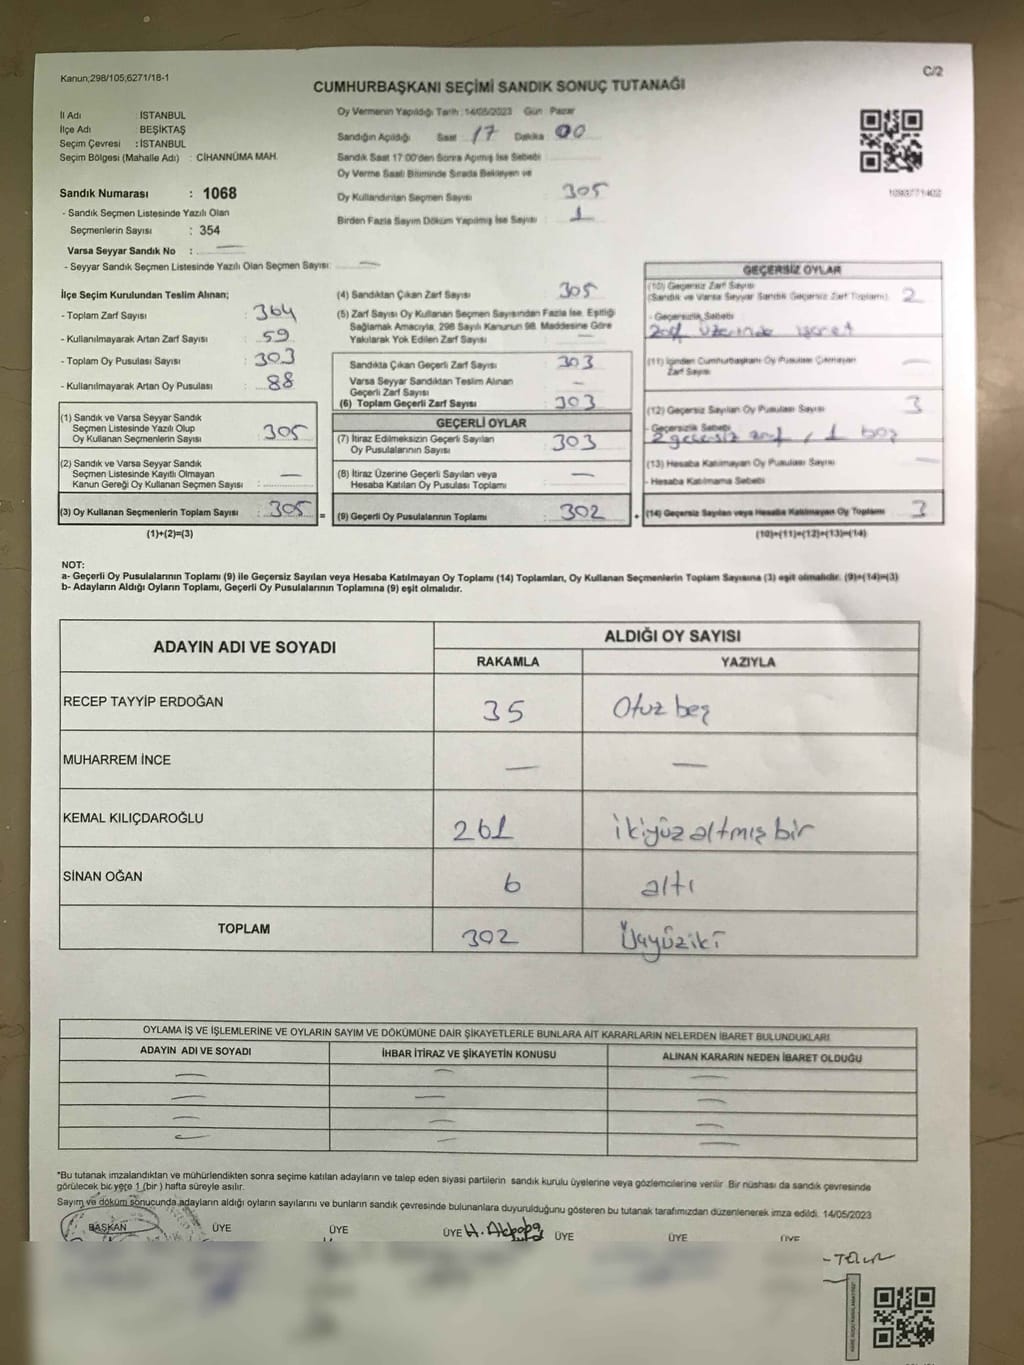 Kanun;298/105;6271/18-1
C/2
CUMHURBAŞKANI SEÇİMİ SANDIK SONUÇ TUTANAĞI
İl Adı : İSTANBUL
İlçe Adı : BEŞİKTAŞ
Seçim Çevresi : İSTANBUL
Seçim Bölgesi (Mahalle Adı) : CİHANNÜMA MAH.
Sandık Numarası : 1068
- Sandık Seçmen Listesinde Yazılı Olan
Seçmenlerin Sayısı : 354
Varsa Seyyar Sandık No : —
- Seyyar Sandık Seçmen Listesinde Yazılı Olan Seçmen Sayısı: —
Oy Vermenin Yapıldığı Tarih :14/05/2023 Gün : Pazar
Sandığın Açıldığı Saat : 17 Dakika : 00
Sandık Saat 17:00'den Sonra Açılmış İse Sebebi :
Oy Verme Saati Bitiminde Sırada Bekleyen ve
Oy Kullandırılan Seçmen Sayısı : 305
Birden Fazla Sayım Döküm Yapılmış İse Sayısı : 1
1093771402
İlçe Seçim Kurulundan Teslim Alınan;
- Toplam Zarf Sayısı : 364
- Kullanılmayarak Artan Zarf Sayısı : 59
- Toplam Oy Pusulası Sayısı : 303
- Kullanılmayarak Artan Oy Pusulası : 88
(1) Sandık ve Varsa Seyyar Sandık
Seçmen Listesinde Yazılı Olup
Oy Kullanan Seçmenlerin Sayısı : 305
(2) Sandık ve Varsa Seyyar Sandık
Seçmen Listesinde Kayıtlı Olmayan
Kanun Gereği Oy Kullanan Seçmen Sayısı : —
(3) Oy Kullanan Seçmenlerin Toplam Sayısı : 305 =
(1)+(2)=(3)
(4) Sandıktan Çıkan Zarf Sayısı : 305
(5) Zarf Sayısı Oy Kullanan Seçmen Sayısından Fazla İse, Eşitliği
Sağlamak Amacıyla, 298 Sayılı Kanunun 98. Maddesine Göre
Yakılarak Yok Edilen Zarf Sayısı : —
Sandıkta Çıkan Geçerli Zarf Sayısı : 303
Varsa Seyyar Sandıktan Teslim Alınan
Geçerli Zarf Sayısı : —
(6) Toplam Geçerli Zarf Sayısı : 303
GEÇERLİ OYLAR
(7) İtiraz Edilmeksizin Geçerli Sayılan
Oy Pusulalarının Sayısı : 303
(8) İtiraz Üzerine Geçerli Sayılan veya
Hesaba Katılan Oy Pusulası Toplamı : —
(9) Geçerli Oy Pusulalarının Toplamı : 302 +
GEÇERSİZ OYLAR
(10) Geçersiz Zarf Sayısı
(Sandık ve Varsa Seyyar Sandık Geçersiz Zarf Toplamı) : 2
- Geçersizlik Sebebi
Zarf üzerinde işaret
(11) İçinden Cumhurbaşkanı Oy Pusulası Çıkmayan
Zarf Sayısı : —
(12) Geçersiz Sayılan Oy Pusulası Sayısı : 3
- Geçersizlik Sebebi
2 geçersiz zarf, 1 boş
(13) Hesaba Katılmayan Oy Pusulası Sayısı : —
- Hesaba Katılmama Sebebi
(14) Geçersiz Sayılan veya Hesaba Katılmayan Oy Toplamı : 3
(10)+(11)+(12)+(13)=(14)
NOT:
a- Geçerli Oy Pusulalarının Toplamı (9) ile Geçersiz Sayılan veya Hesaba Katılmayan Oy Toplamı (14) Toplamları, Oy Kullanan Seçmenlerin Toplam Sayısına (3) eşit olmalıdır. (9)+(14)=(3)
b- Adayların Aldığı Oyların Toplamı, Geçerli Oy Pusulalarının Toplamına (9) eşit olmalıdır.
ADAYIN ADI VE SOYADI ALDIĞI OY SAYISI
RAKAMLA YAZIYLA
RECEP TAYYİP ERDOĞAN 35 Otuz beş
MUHARREM İNCE — —
KEMAL KILIÇDAROĞLU 261 ikiyüz altmış bir
SİNAN OĞAN 6 altı
TOPLAM 302 Üçyüziki
OYLAMA İŞ VE İŞLEMLERİNE VE OYLARIN SAYIM VE DÖKÜMÜNE DAİR ŞİKAYETLERLE BUNLARA AİT KARARLARIN NELERDEN İBARET BULUNDUKLARI
ADAYIN ADI VE SOYADI İHBAR İTİRAZ VE ŞİKAYETİN KONUSU ALINAN KARARIN NEDEN İBARET OLDUĞU
— — —
— — —
— — —
— — —
*Bu tutanak imzalandıktan ve mühürlendikten sonra seçime katılan adayların ve talep eden siyasi partilerin sandık kurulu üyelerine veya gözlemcilerine verilir. Bir nüshası da sandık çevresinde
görülecek bir yere 1 (bir) hafta süreyle asılır.
Sayım ve döküm sonucunda adayların aldığı oyların sayılarını ve bunların sandık çevresinde bulunanlara duyurulduğunu gösteren bu tutanak tarafımızdan düzenlenerek imza edildi. 14/05/2023
BAŞKAN ÜYE ÜYE ÜYE H. Akpopa ÜYE ÜYE ÜYE